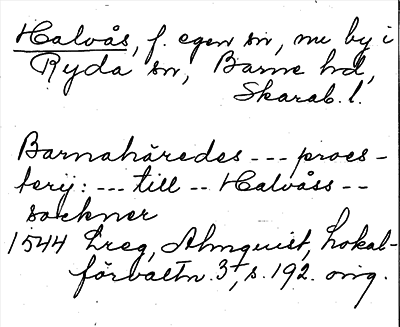 Halvås, f. egen sn, nu by i
Ryda sn, Barne hd,
Skarab. l.
Barnahäredes --- proes-
terij: --- till -- Halvåss --
sockner
1544 Lreg, Almquist, Lokal-
förvaltn. 3⁺, s. 192. orig.